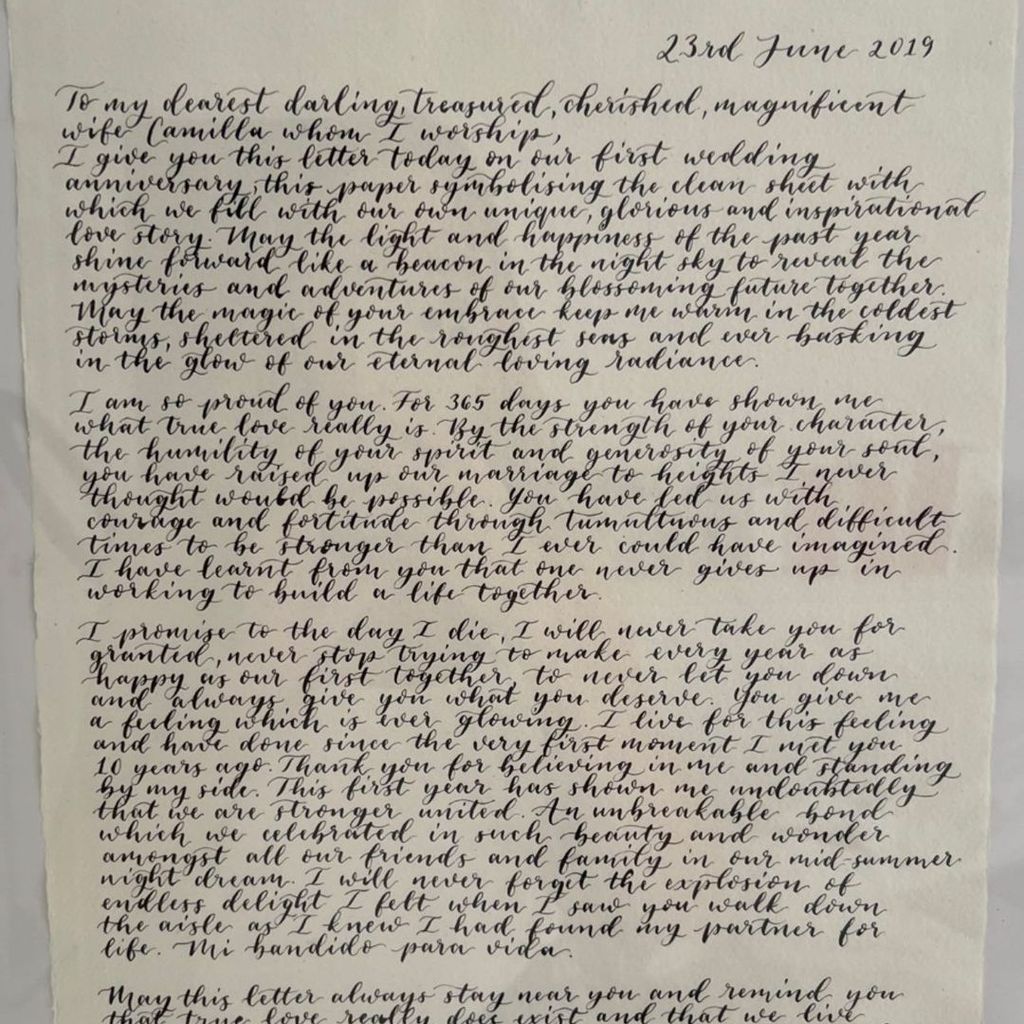 23rd June 2019
To my dearest darling, treasured, cherished, magnificent
wife Camilla whom I worship,
I give you this letter today on our first wedding
anniversary, this paper symbolising the clean sheet with
which we fill with our own unique, glorious and inspirational
love story. May the light and happiness of the past year
shine forward like a beacon in the night sky to reveal the
mysteries and adventures of our blossoming future together.
May the magic of your embrace keep me warm in the coldest
storms, sheltered in the roughest seas and ever basking
in the glow of our eternal loving radiance.
I am so proud of you. For 365 days you have shown me
what true love really is. By the strength of your character,
the humility of your spirit and generosity of your soul,
you have raised up our marriage to heights I never
thought would be possible. You have led us with
courage and fortitude through tumultuous and difficult
times to be stronger than I ever could have imagined.
I have learnt from you that one never gives up in
working to build a life together.
I promise to the day I die, I will never take you for
granted, never stop trying to make every year as
happy as our first together, to never let you down
and always give you what you deserve. You give me
a feeling which is ever glowing. I live for this feeling
and have done since the very first moment I met you
10 years ago. Thank you for believing in me and standing
by my side. This first year has shown me undoubtedly
that we are stronger united. An unbreakable bond
which we celebrated in such beauty and wonder
amongst all our friends and family in our mid-summer
night dream. I will never forget the explosion of
endless delight I felt when I saw you walk down
the aisle as I knew I had found my partner for
life. Mi bandido para vida.
May this letter always stay near you and remind you
that true love really does exist and that we live